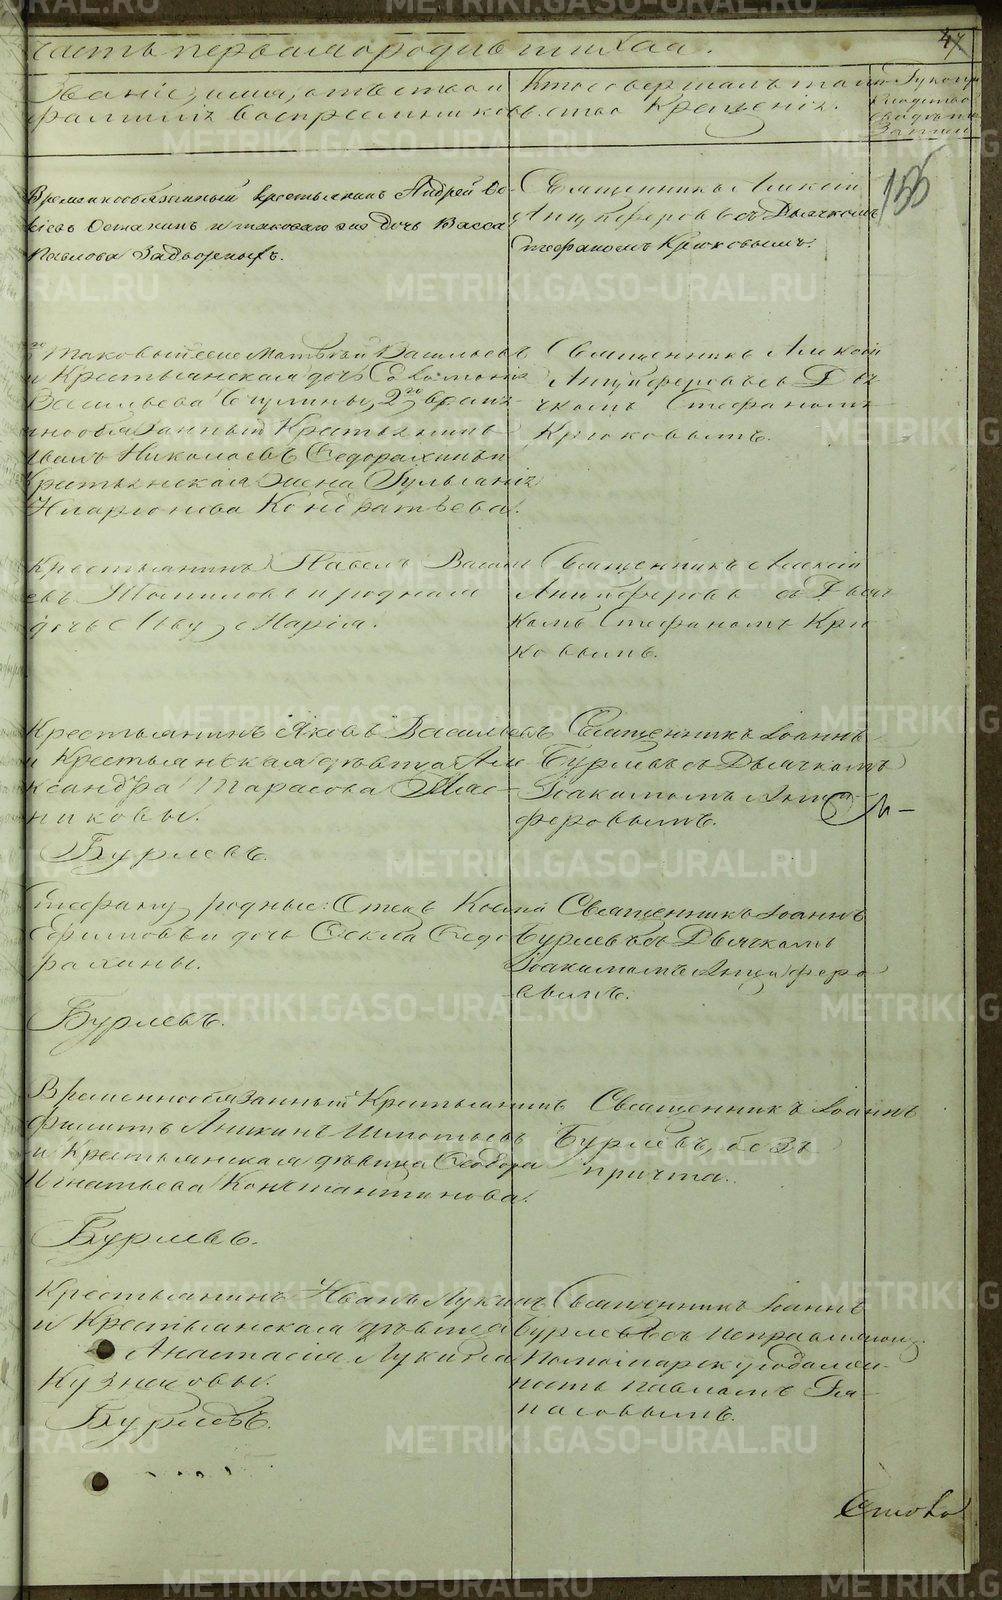 METRIKI.GASO-URAL.RU
часть первая о родившихся.
47
Званіе, имя, отчество и
фамилія воспреемниковъ.
Кто совершалъ таин-
ство крещенія.
Рукопри
кладство
свидѣте
записи
Временнообязанный крестьянинъ Андрей Ео-
Останинъ и таковаго же дочь Васса
Павлова Задворныхъ.
Священникъ Алексій
Анциферовъ съ Дьячкомъ
Стефаномъ Крюковымъ.
156
таковыя же Матвѣй Васильевъ
и Крестьянская дочь Соломонія
Васильева 2го времен-
нообязанный Крестьянинъ
Иванъ Николаевъ Ѳедорахинъ и
Крестьянская жена Іуліанія
Иларіонова Кондратьева.
Священникъ Алексій
Анциферовъ съ Дья
чкомъ Стефаномъ
Крюковымъ.
Крестьянинъ Павелъ Василь
евъ Томиловъ и родная
дочь Льву Марія.
Священникъ Алексій
Анциферовъ съ Дьяч
комъ Стефаномъ Крю
ковымъ.
Крестьянинъ Яковъ Васильевъ
и Крестьянская дѣвица Але
ксандра Тарасова Мяс-
никовы.
Бурлевъ.
Священникъ Іоаннъ
Бурлевъ съ Дьячкомъ
Іоакимомъ Анци-
феровымъ.
Стефану родные: Отецъ Козма
Ефимовъ и дочь Ѳекла Ѳедо
рахины.
Бурлевъ.
Священникъ Іоаннъ
Бурлевъ съ Дьячкомъ
Іоакимомъ Анциферо
вымъ.
Временнообязанный Крестьянинъ
Филиппъ Аникинъ
и Крестьянская дѣвица Ѳеодора
Игнатьева Константинова.
Бурлевъ.
Священникъ Іоаннъ
Бурлевъ, безъ
причта.
Крестьянинъ Иванъ Лукинъ
и Крестьянская дѣвица
Анастасія Лукина
Кузнецовы.
Бурлевъ.
Священникъ Іоаннъ
Бурлевъ съ исправляющ.
Пономарскую должн-
ность Павломъ